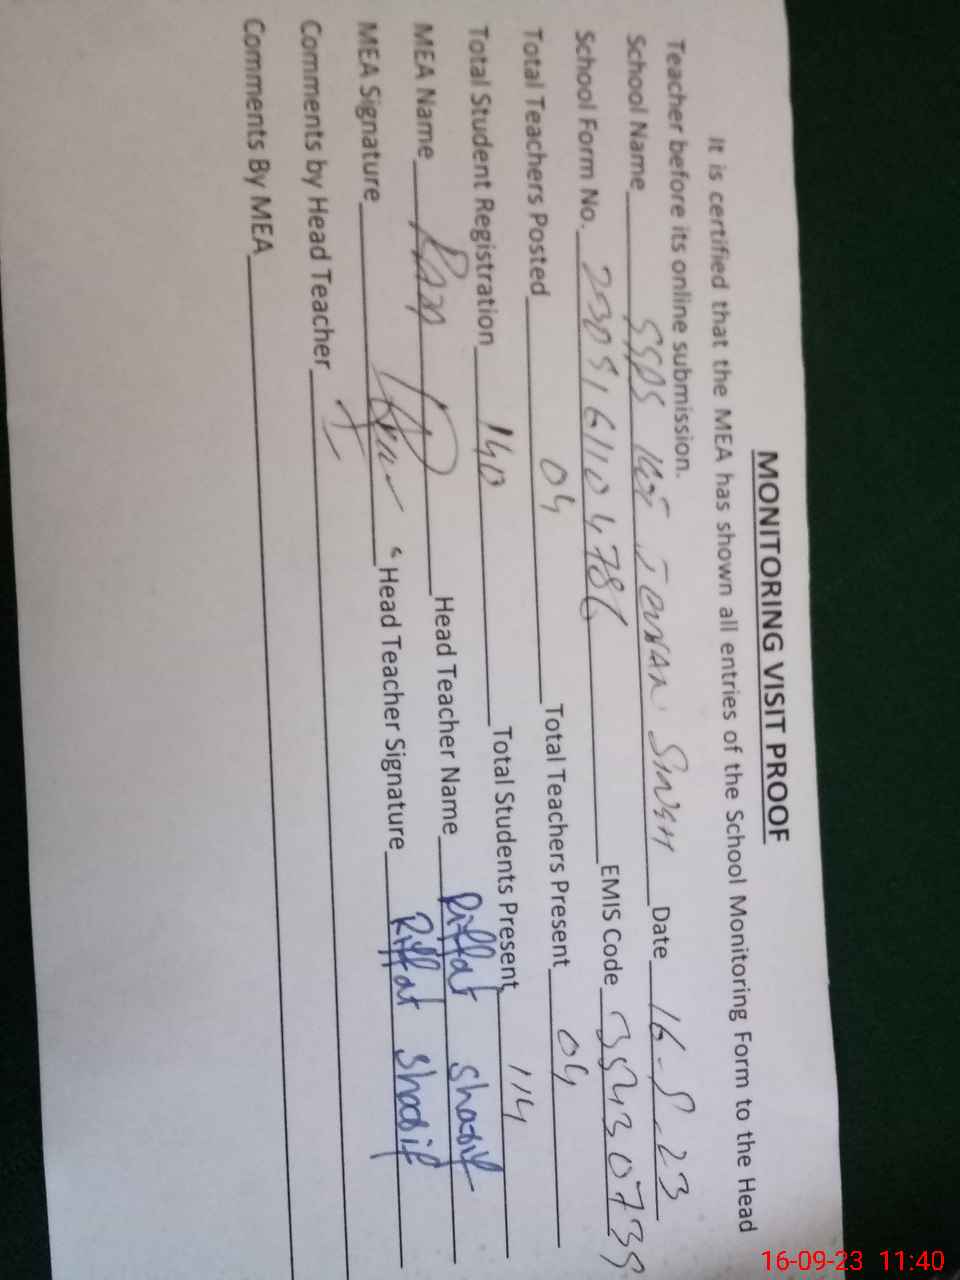 MONITORING VISIT PROOF
It is certified that the MEA has shown all entries of the School Monitoring Form to the Head
Teacher before its online submission.
School Name SINGH Date 16-9-23
School Form No. EMIS Code
Total Teachers Posted 04 Total Teachers Present 04
Total Student Registration 140 Total Students Present 114
MEA Name Head Teacher Name Riffat Sharif
MEA Signature Head Teacher Signature Riffat Sharif
Comments by Head Teacher
Comments By MEA
16-09-23 11:40